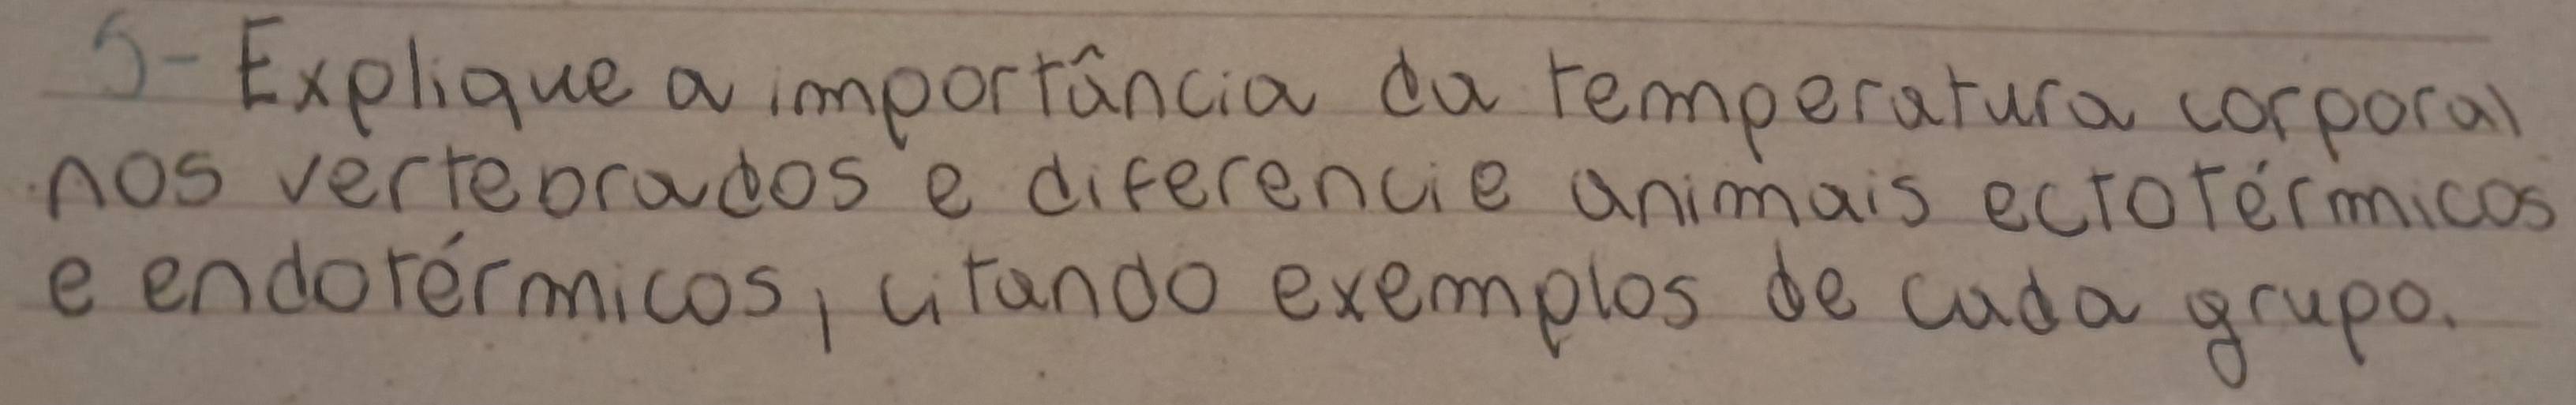 5- Explique a importância da temperatura corporal
nos vertebrados e diferencie animais ectotérmicos
e endotérmicos, citando exemplos de cada grupo.